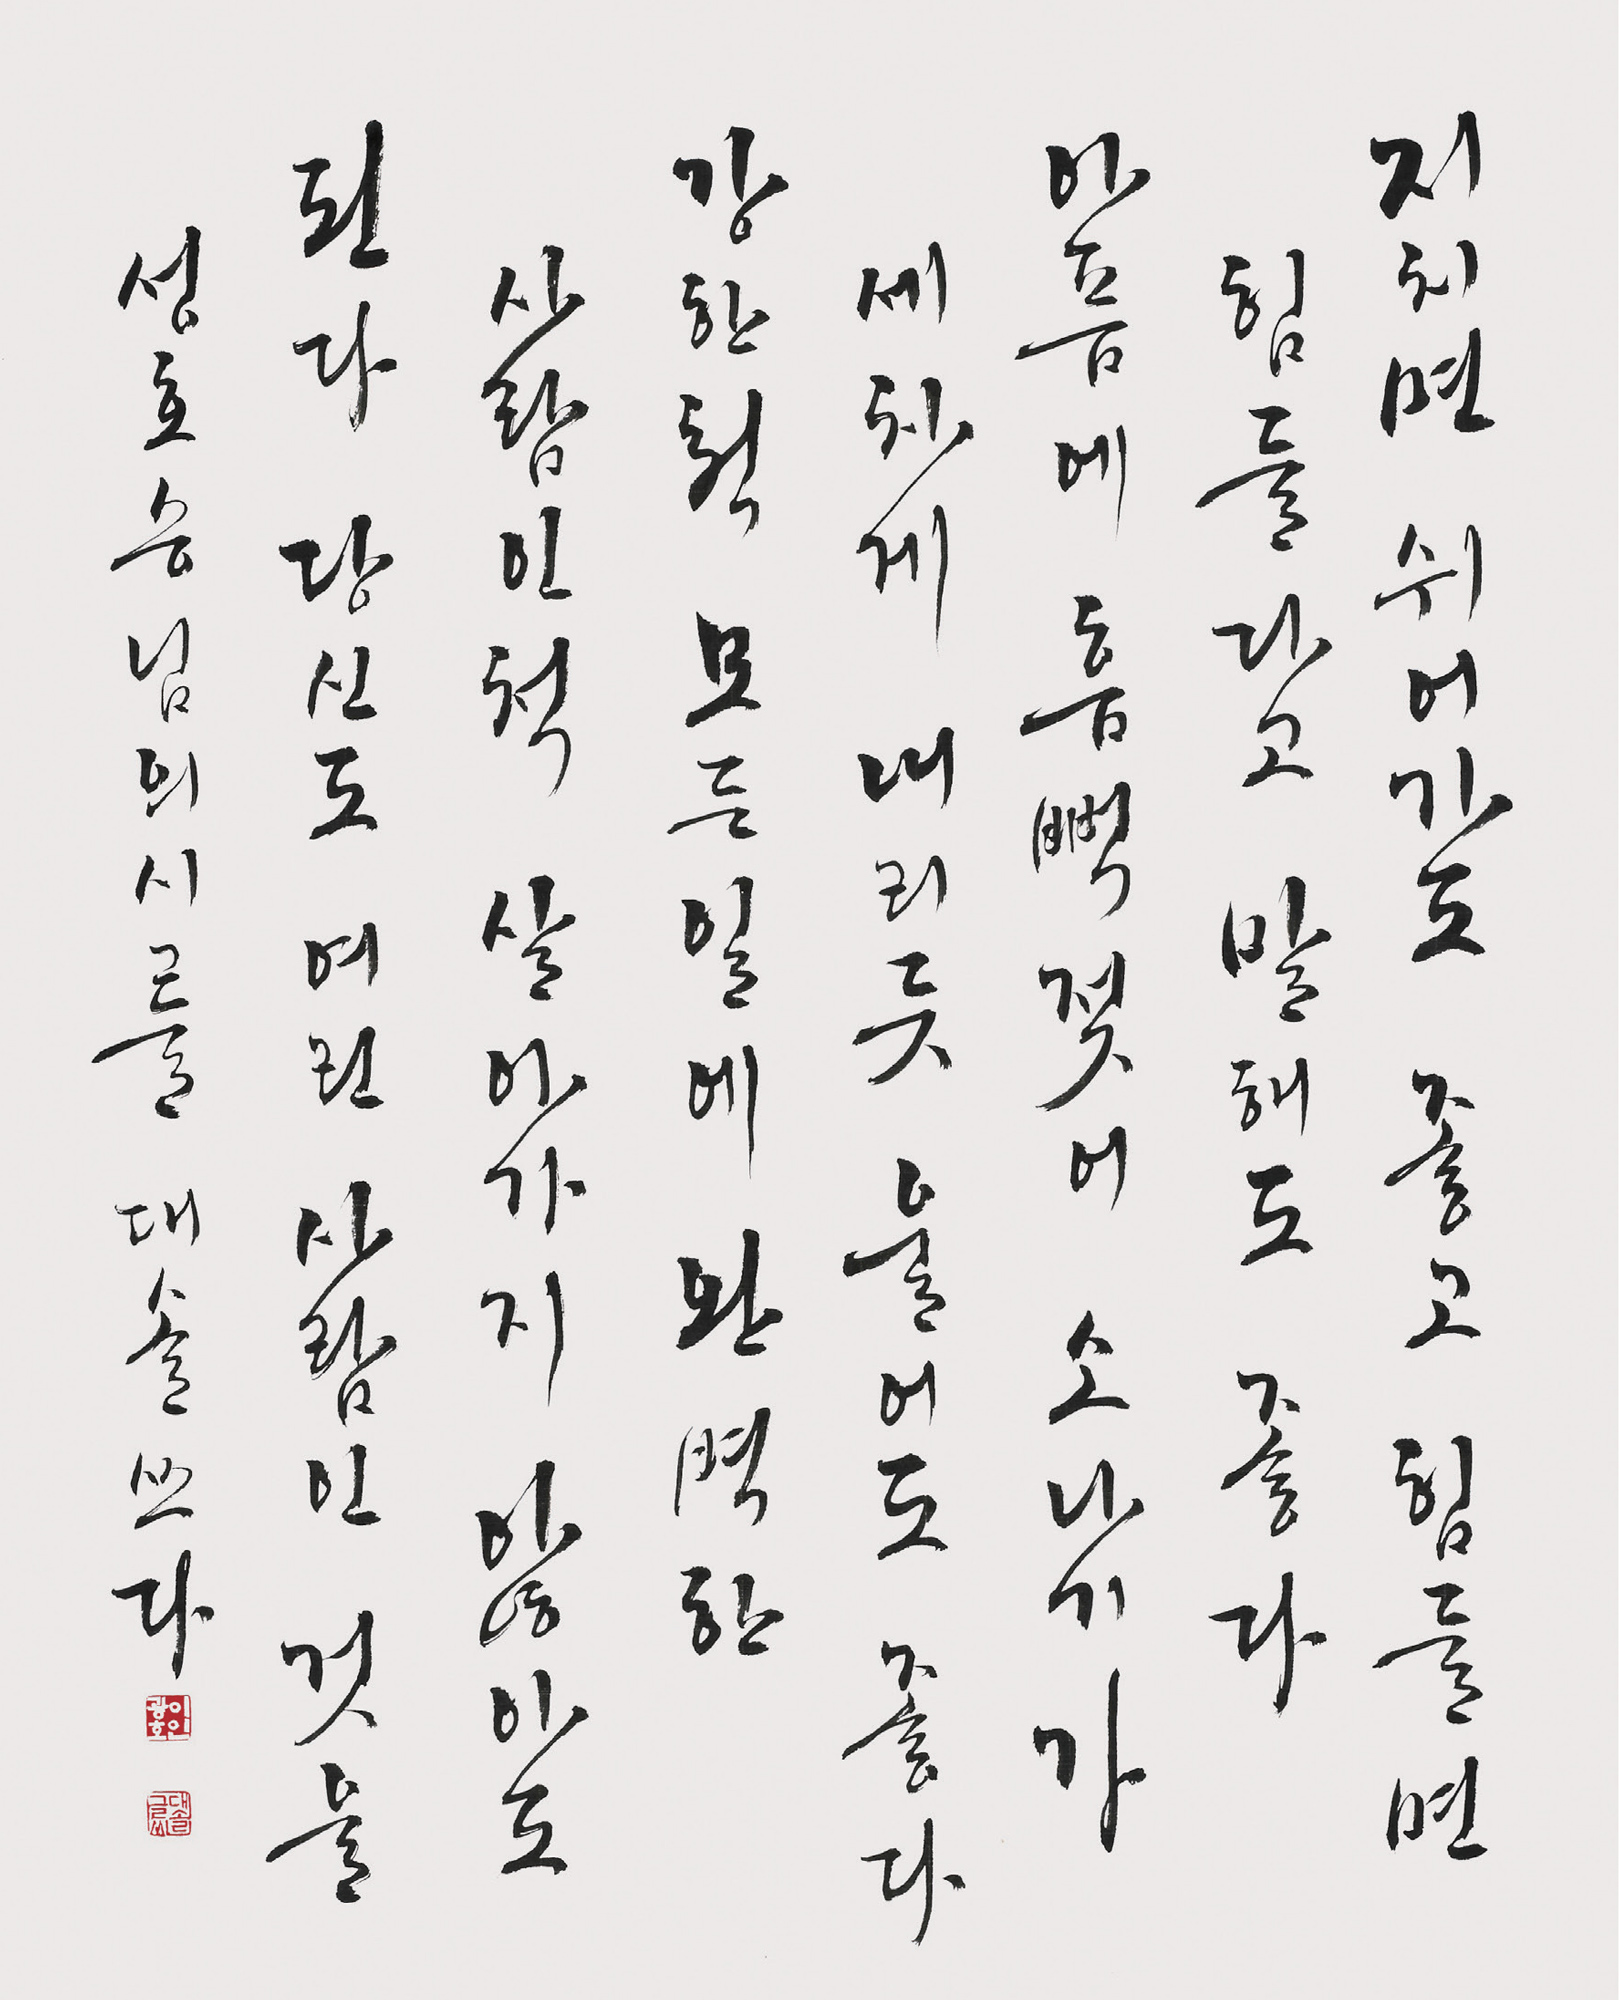 지치면 쉬어가도 좋고 힘들면
힘들다고 말해도 좋다
아픔에 흠뻑 젖어 소나기가
세차게 내리듯 울어도 좋다
강한척 모든일에 완벽한
사람인척 살아가지 않아도
된다 당신도 여린 사람인 것을
성호승님의시를 대솔쓰다
이인광호
대솔